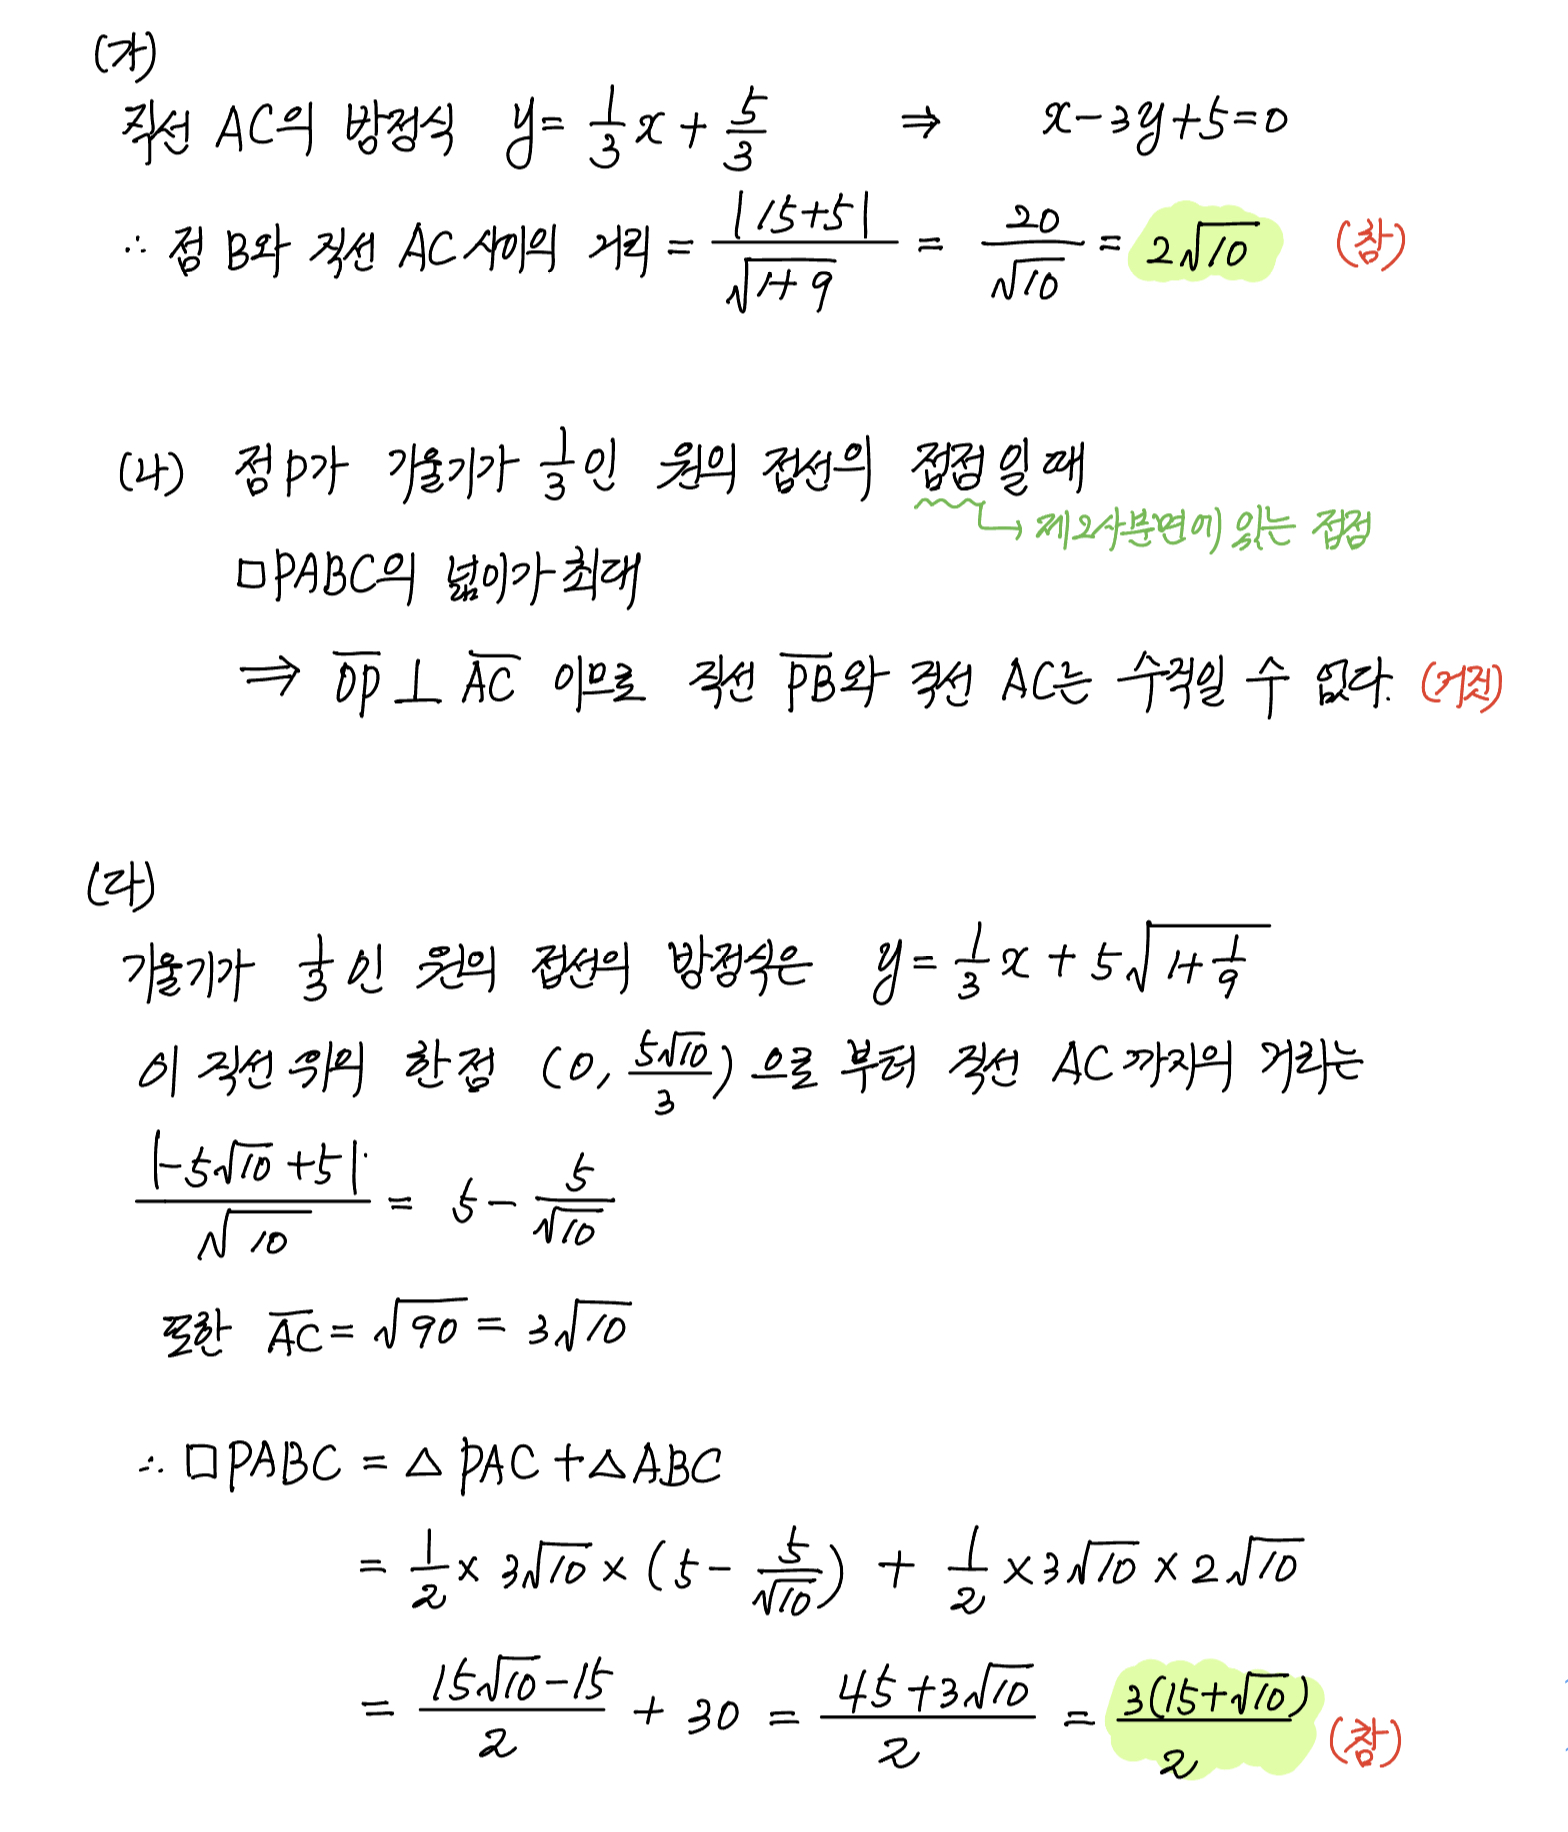 (가)
직선 AC의 방정식 y = 1/3 x + 5/3 ⇒ x-3y+5=0
∴ 점 B와 직선 AC 사이의 거리 = |15+5|/√(1+9) = 20/√10 = 2√10 (참)
(나) 점P가 기울기가 1/3인 원의 접선의 접점일 때
→ 제2사분면에 있는 접점
□PABC의 넓이가 최대
⇒ O̅P̅ ⊥ A̅C̅ 이므로 직선 P̅B̅와 직선 AC는 수직일 수 없다. (거짓)
(라)
기울기가 1/3인 원의 접선의 방정식은 y = 1/3 x + 5√(1+1/9)
이 직선 위의 한 점 (0, 5√10/3)으로 부터 직선 AC까지의 거리는
|-5√10+5|/√10 = 5 - 5/√10
또한 A̅C̅ = √90 = 3√10
∴ □PABC = △PAC + △ABC
= 1/2 × 3√10 × (5 - 5/√10) + 1/2 × 3√10 × 2√10
= (15√10-15)/2 + 30 = (45+3√10)/2 = 3(15+√10)/2 (참)